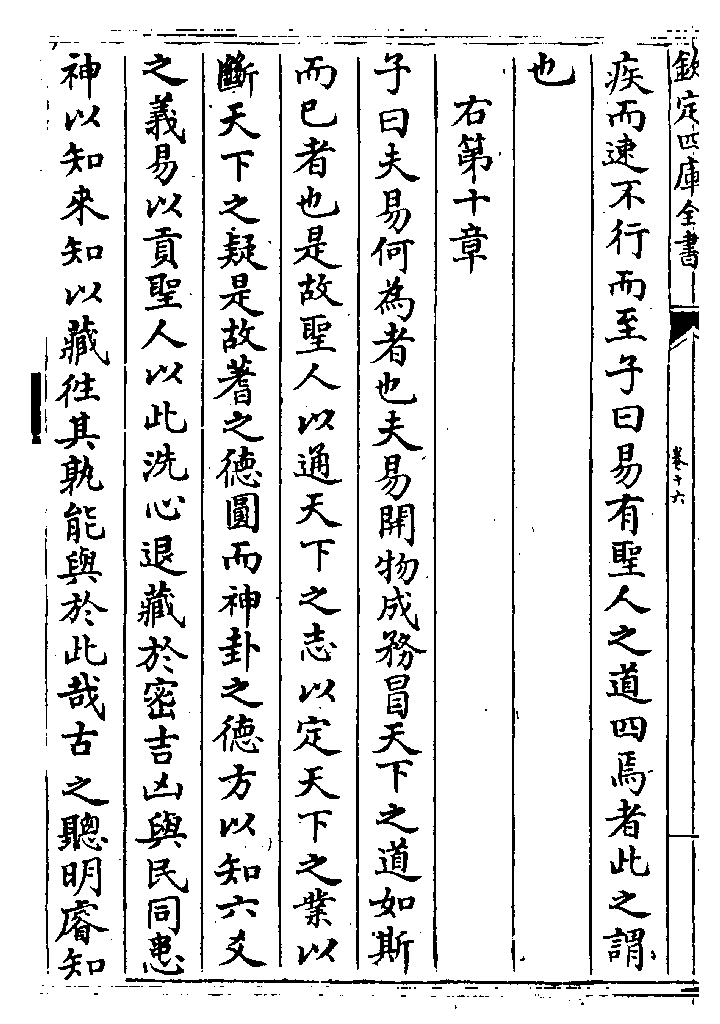 欽定四庫全書
卷十六
疾而速不行而至子曰易有聖人之道四焉者此之謂
也
右第十章
子曰夫易何為者也夫易開物成務冒天下之道如斯
而已者也是故聖人以通天下之志以定天下之業以
斷天下之疑是故蓍之德圓而神卦之德方以知六爻
之義易以貢聖人以此洗心退藏於密吉凶與民同患
神以知來知以藏徃其孰能與於此哉古之聰明睿知